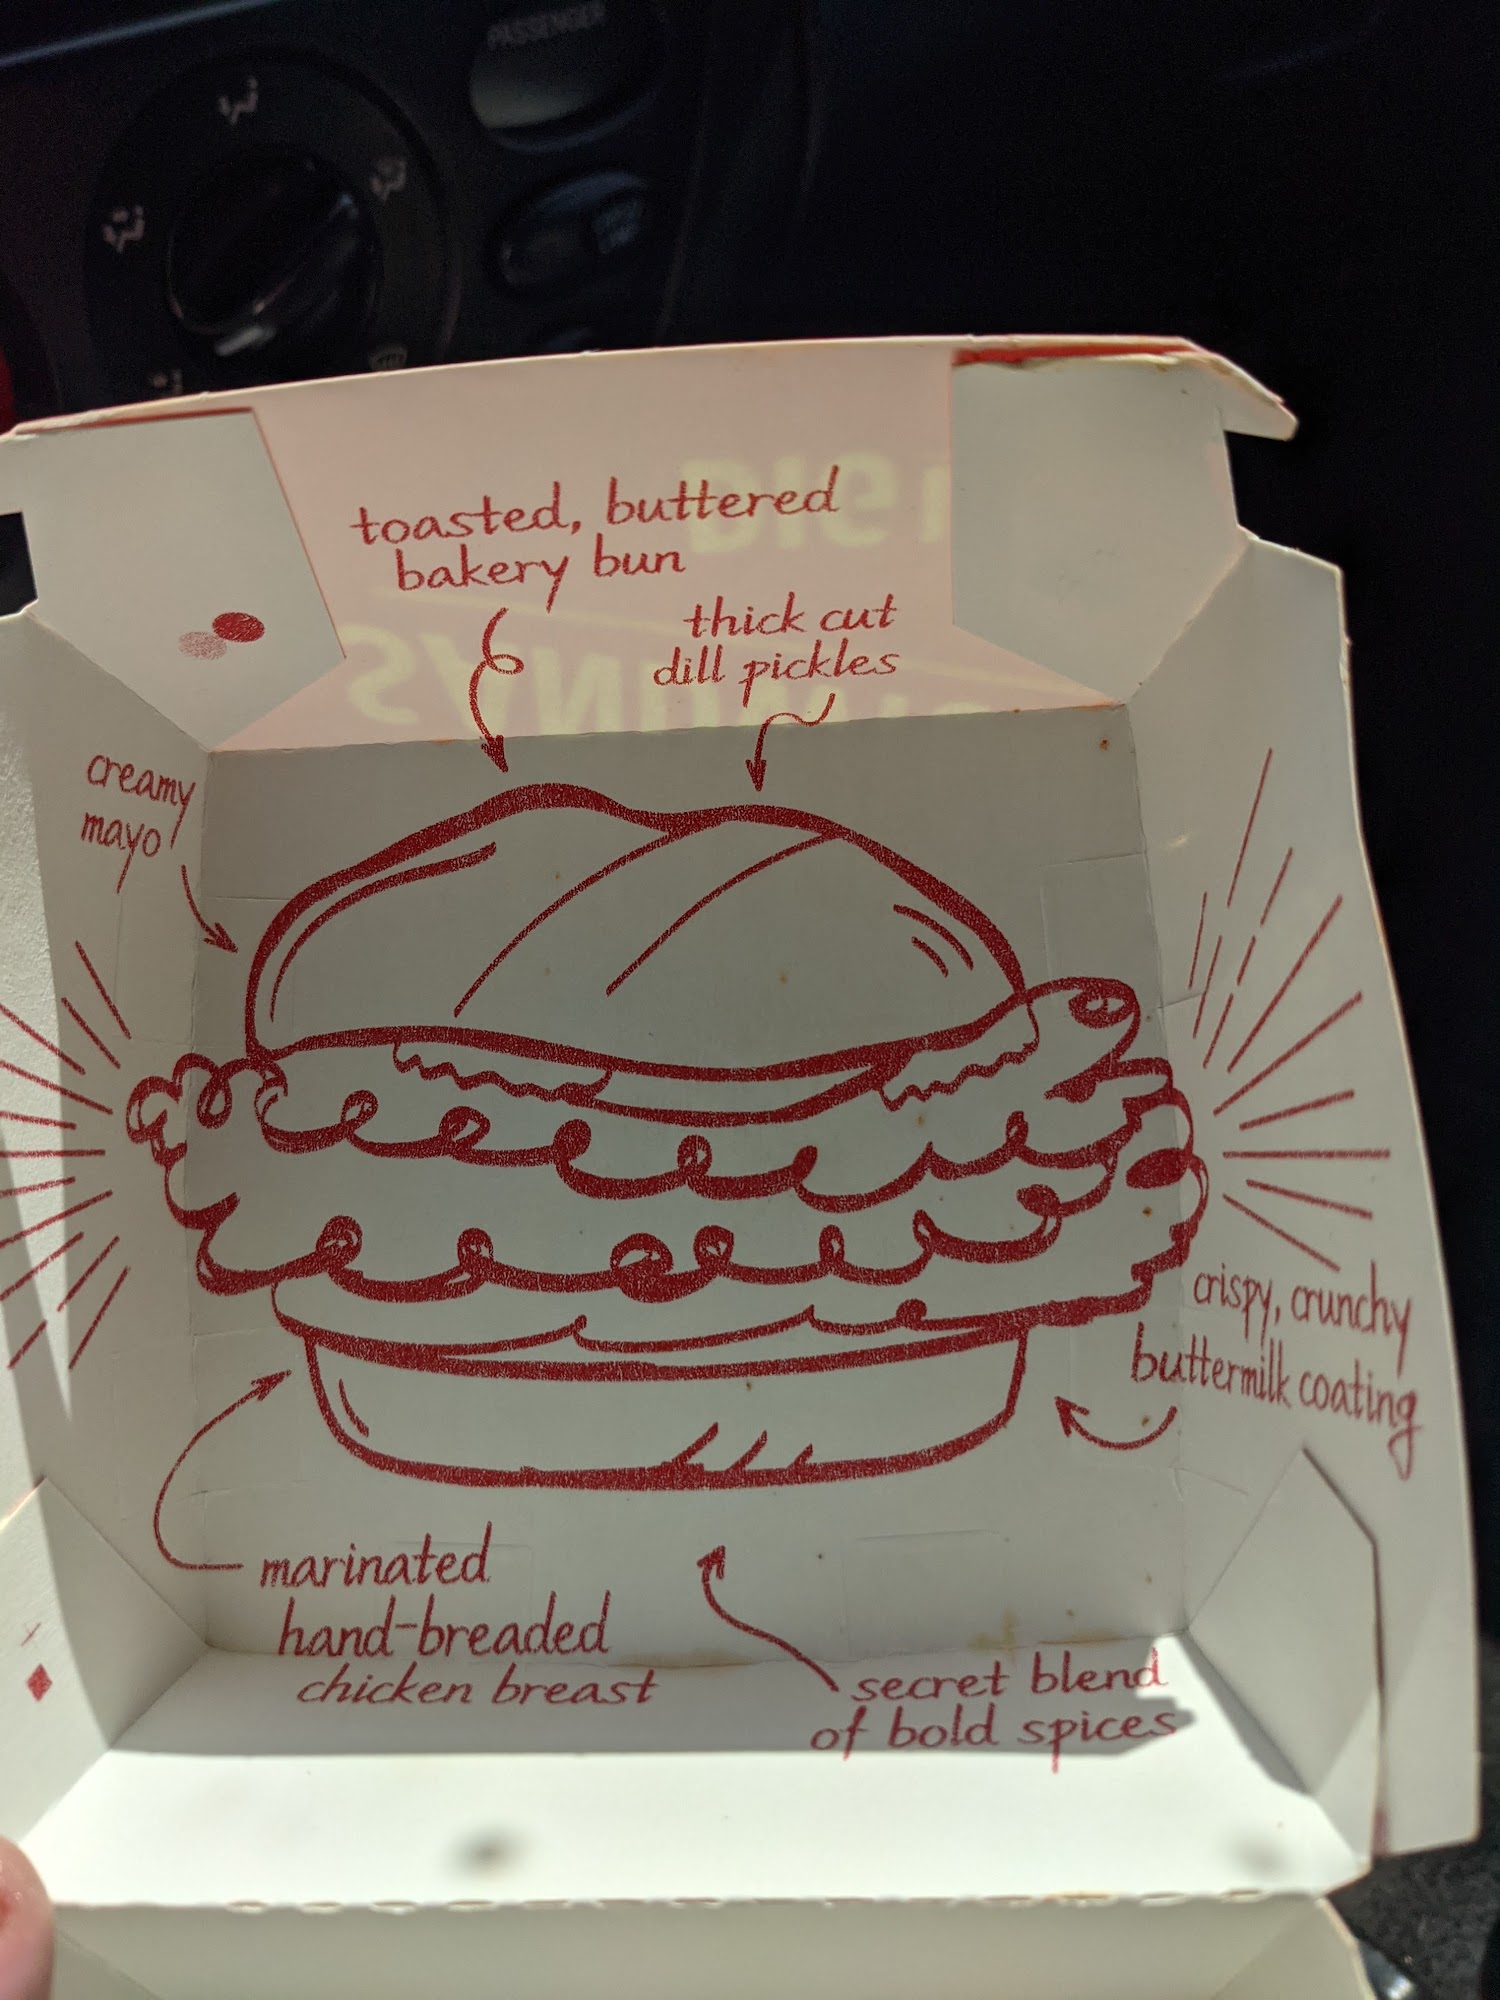 PASSENGER
toasted, buttered
bakery bun
thick cut
dill pickles
creamy
mayo
crispy, crunchy
buttermilk coating
marinated
hand-breaded
chicken breast
secret blend
of bold spices